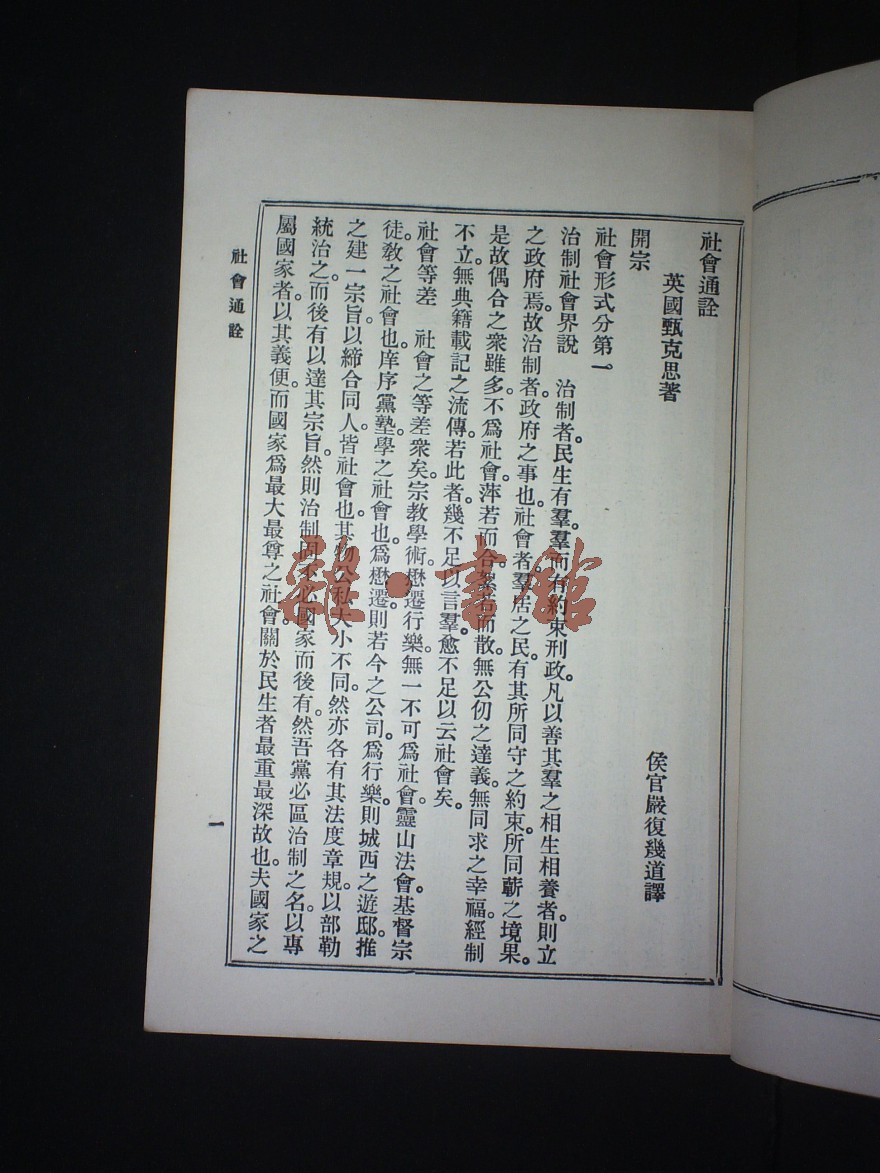 社會通詮
英國甄克思著
侯官嚴復幾道譯
開宗
社會形式分第一
治制社會界說　治制者民生有羣。羣而有約束刑政。凡以善其羣之相生相養者。則立
之政府焉。故治制者政府之事也。社會者羣居之民有其所同守之約束。所同蘄之境果。
是故偶合之衆雖多。不爲社會。萍若而合絮若而散。無公仞之達義。無同求之幸福。經制
不立。無典籍載記之流傳。若此者。幾不足以言羣。愈不足以云社會矣。
社會等差　社會之等差衆矣。宗教學術。懋遷行樂。無一不可爲社會。靈山法會。基督宗
徒。敎之社會也。庠序黨塾。學之社會也。爲懋遷。則若今之公司。爲行樂。則城西之遊邸。推
之建一宗旨。以締合同人。皆社會也。其物公私大小不同。然亦各有其法度章規。以部勒
統治之。而後有以達其宗旨。然則治制固不必國家而後有。然吾黨必區治制之名。以專
屬國家者。以其義便。而國家爲最大最尊之社會。關於民生者最重最深故也。夫國家之
社會通詮
一
雜·書館